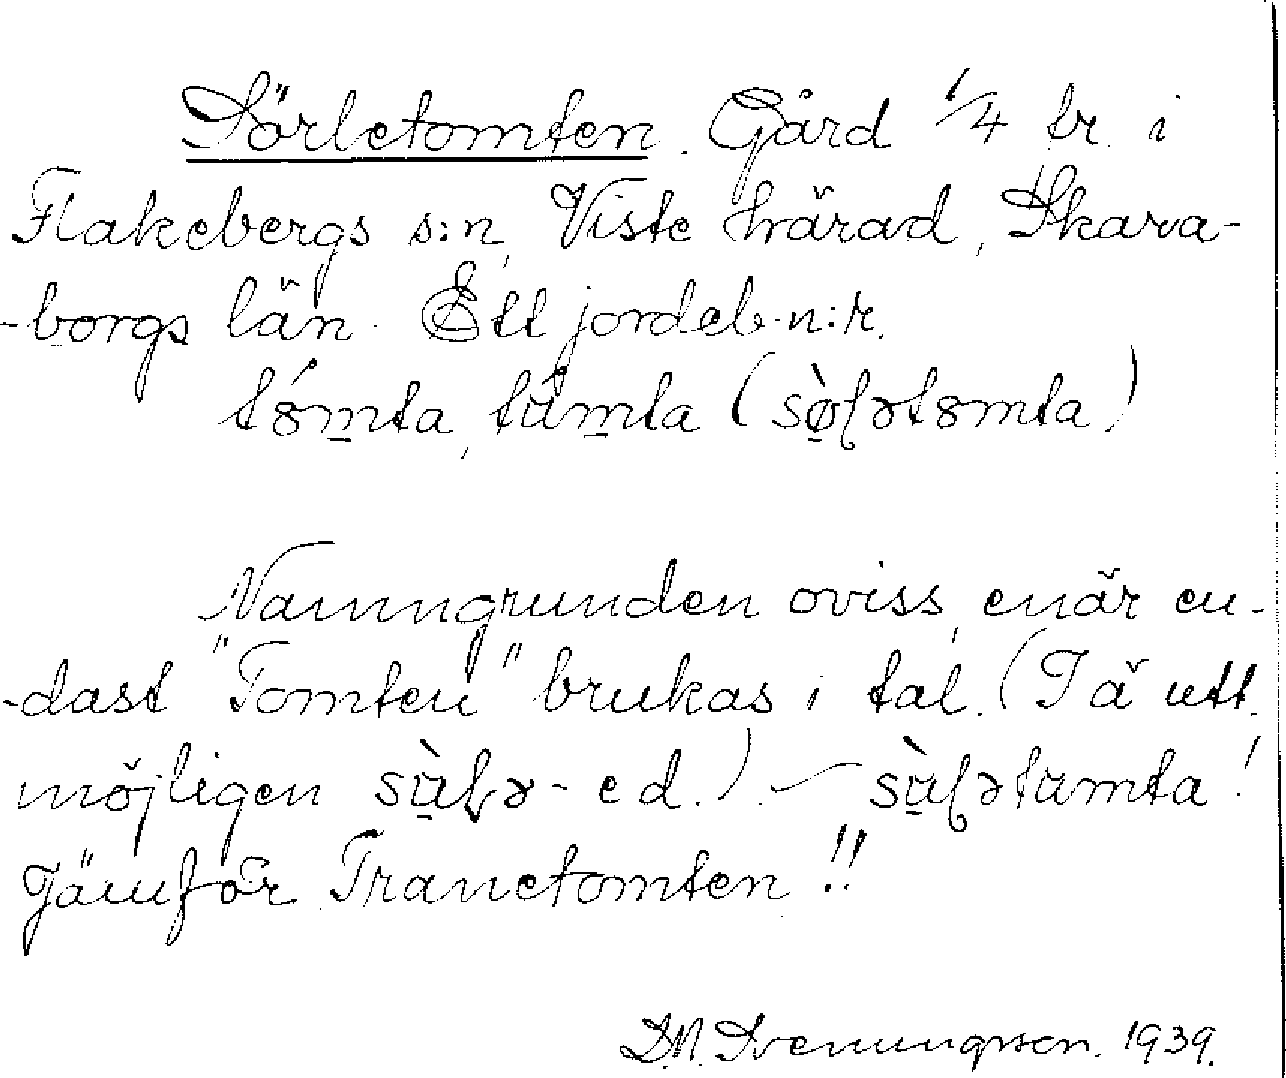 Sörletomten. Gård 1/4 tr. i
Flakebergs s:n, Viste härad, Skara-
-borgs län. Ett jordeb.n:r.
tómta, tûmta (sø̀ɭətȣmta)
Namngrunden oviss, enär en-
-dast "Tomten" brukas i tal. (I ä utt.
möjligen sùɭə- ed.). – sùɭətumta!
Jämför Tranetomten!!
D.N. Svenungsson. 1939.